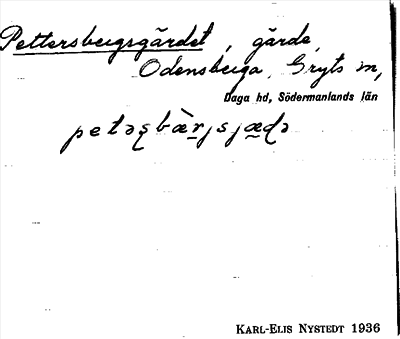 Pettersbergsgärdet, gärde,
Odensberga, Gryts sn,
Daga hd, Södermanlands län
petəʂbær̠jsjæ̠ɖə
KARL-ELIS NYSTEDT 1936